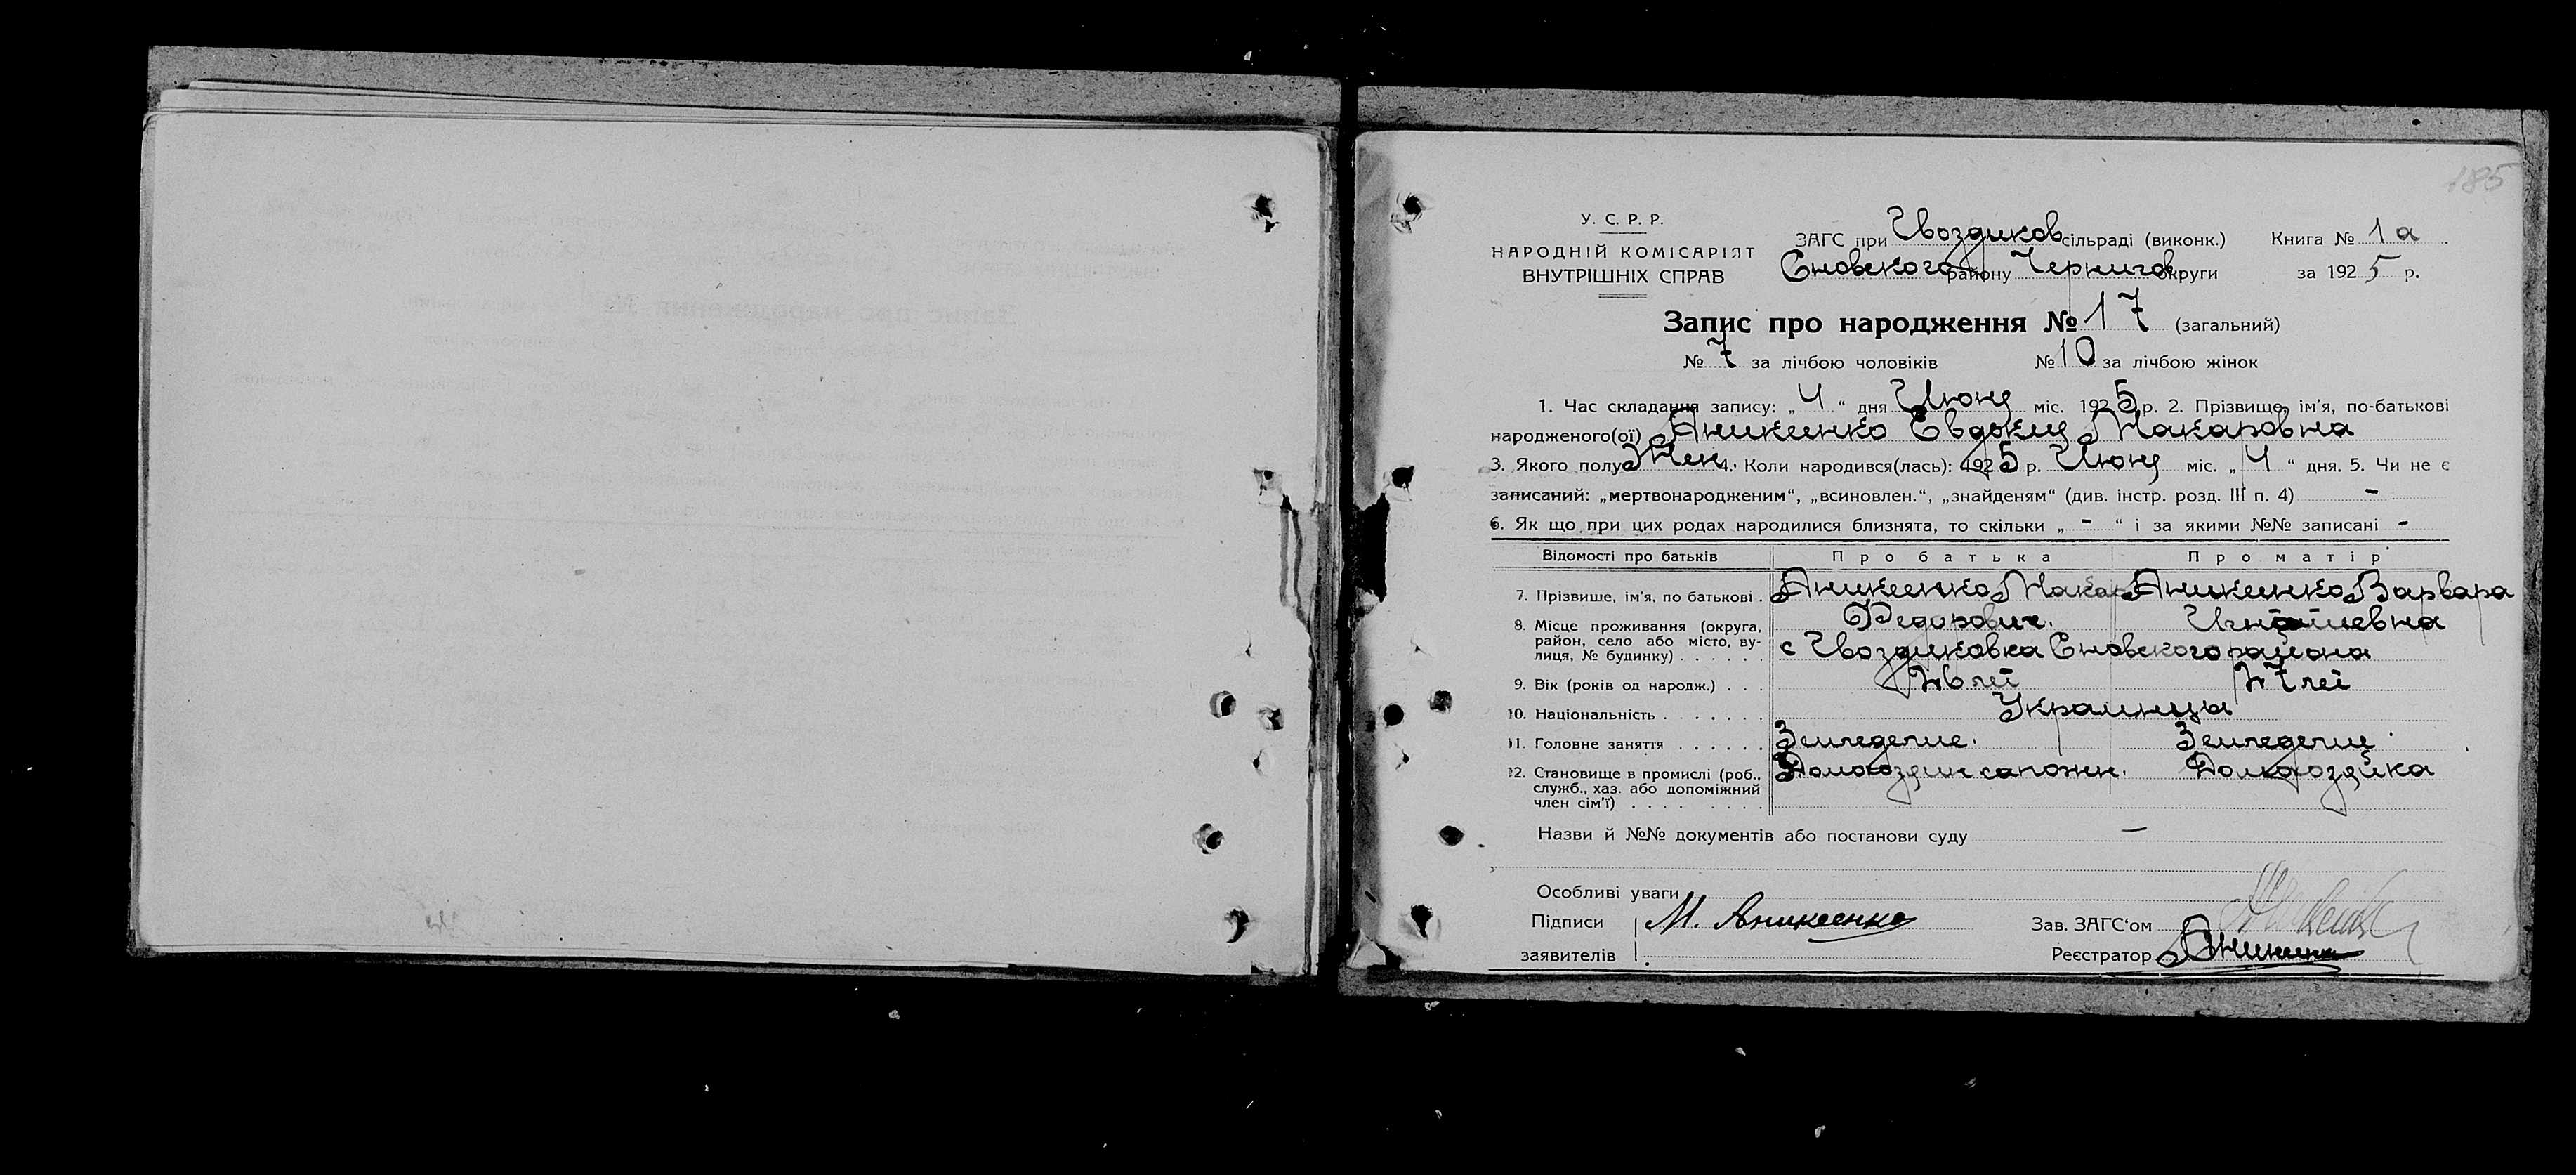 185
У. С. Р. Р.
НАРОДНІЙ КОМІСАРІЯТ
ВНУТРІШНІХ СПРАВ
ЗАГС при Гвоздиков сільраді (виконк.) Книга № 1а
Сновского району Чернигов округи за 1925 р.
Запис про народження № 17 (загальний)
№ 7 за лічбою чоловіків № 10 за лічбою жінок
1. Час складання запису: „4“ дня Июня міс. 1925 р. 2. Прізвище, ім'я, по-батькові
народженого(ої) Аникеенко Евдокия Макаровна
3. Якого полу Жен. 4. Коли народився(лась): 1925 р. Июня міс. „4“ дня. 5. Чи не є
записаний: „мертвонародженим“, „всиновлен.“, „знайденям“ (див. інстр. розд. III п. 4) -
6. Як що при цих родах народилися близнята, то скільки „-“ і за якими №№ записані -
Відомості про батьків Про батька Про матір
7. Прізвише, ім'я, по батькові . Аникеенко Макар Аникеенко Варвара
Федорович.
8. Місце проживання (округа,
район, село або місто, ву-
лиця, № будинку) . . . . . . с Гвоздиковка Сновского района
9. Вік (років од народж.) . . . лет лет
10. Національність . . . . . . . Украинцы
11. Головне заняття . . . . . . Земледелие. Земледелие
12. Становище в промислі (роб.,
служб., хаз. або допоміжний
член сім'ї) . . . . . . . . Домохозяин сапожн. Домохозяйка
Назви й №№ документів або постанови суду —
Особливі уваги
Підписи М. Аникеенко Зав. ЗАГС'ом
заявителів Реєстратор